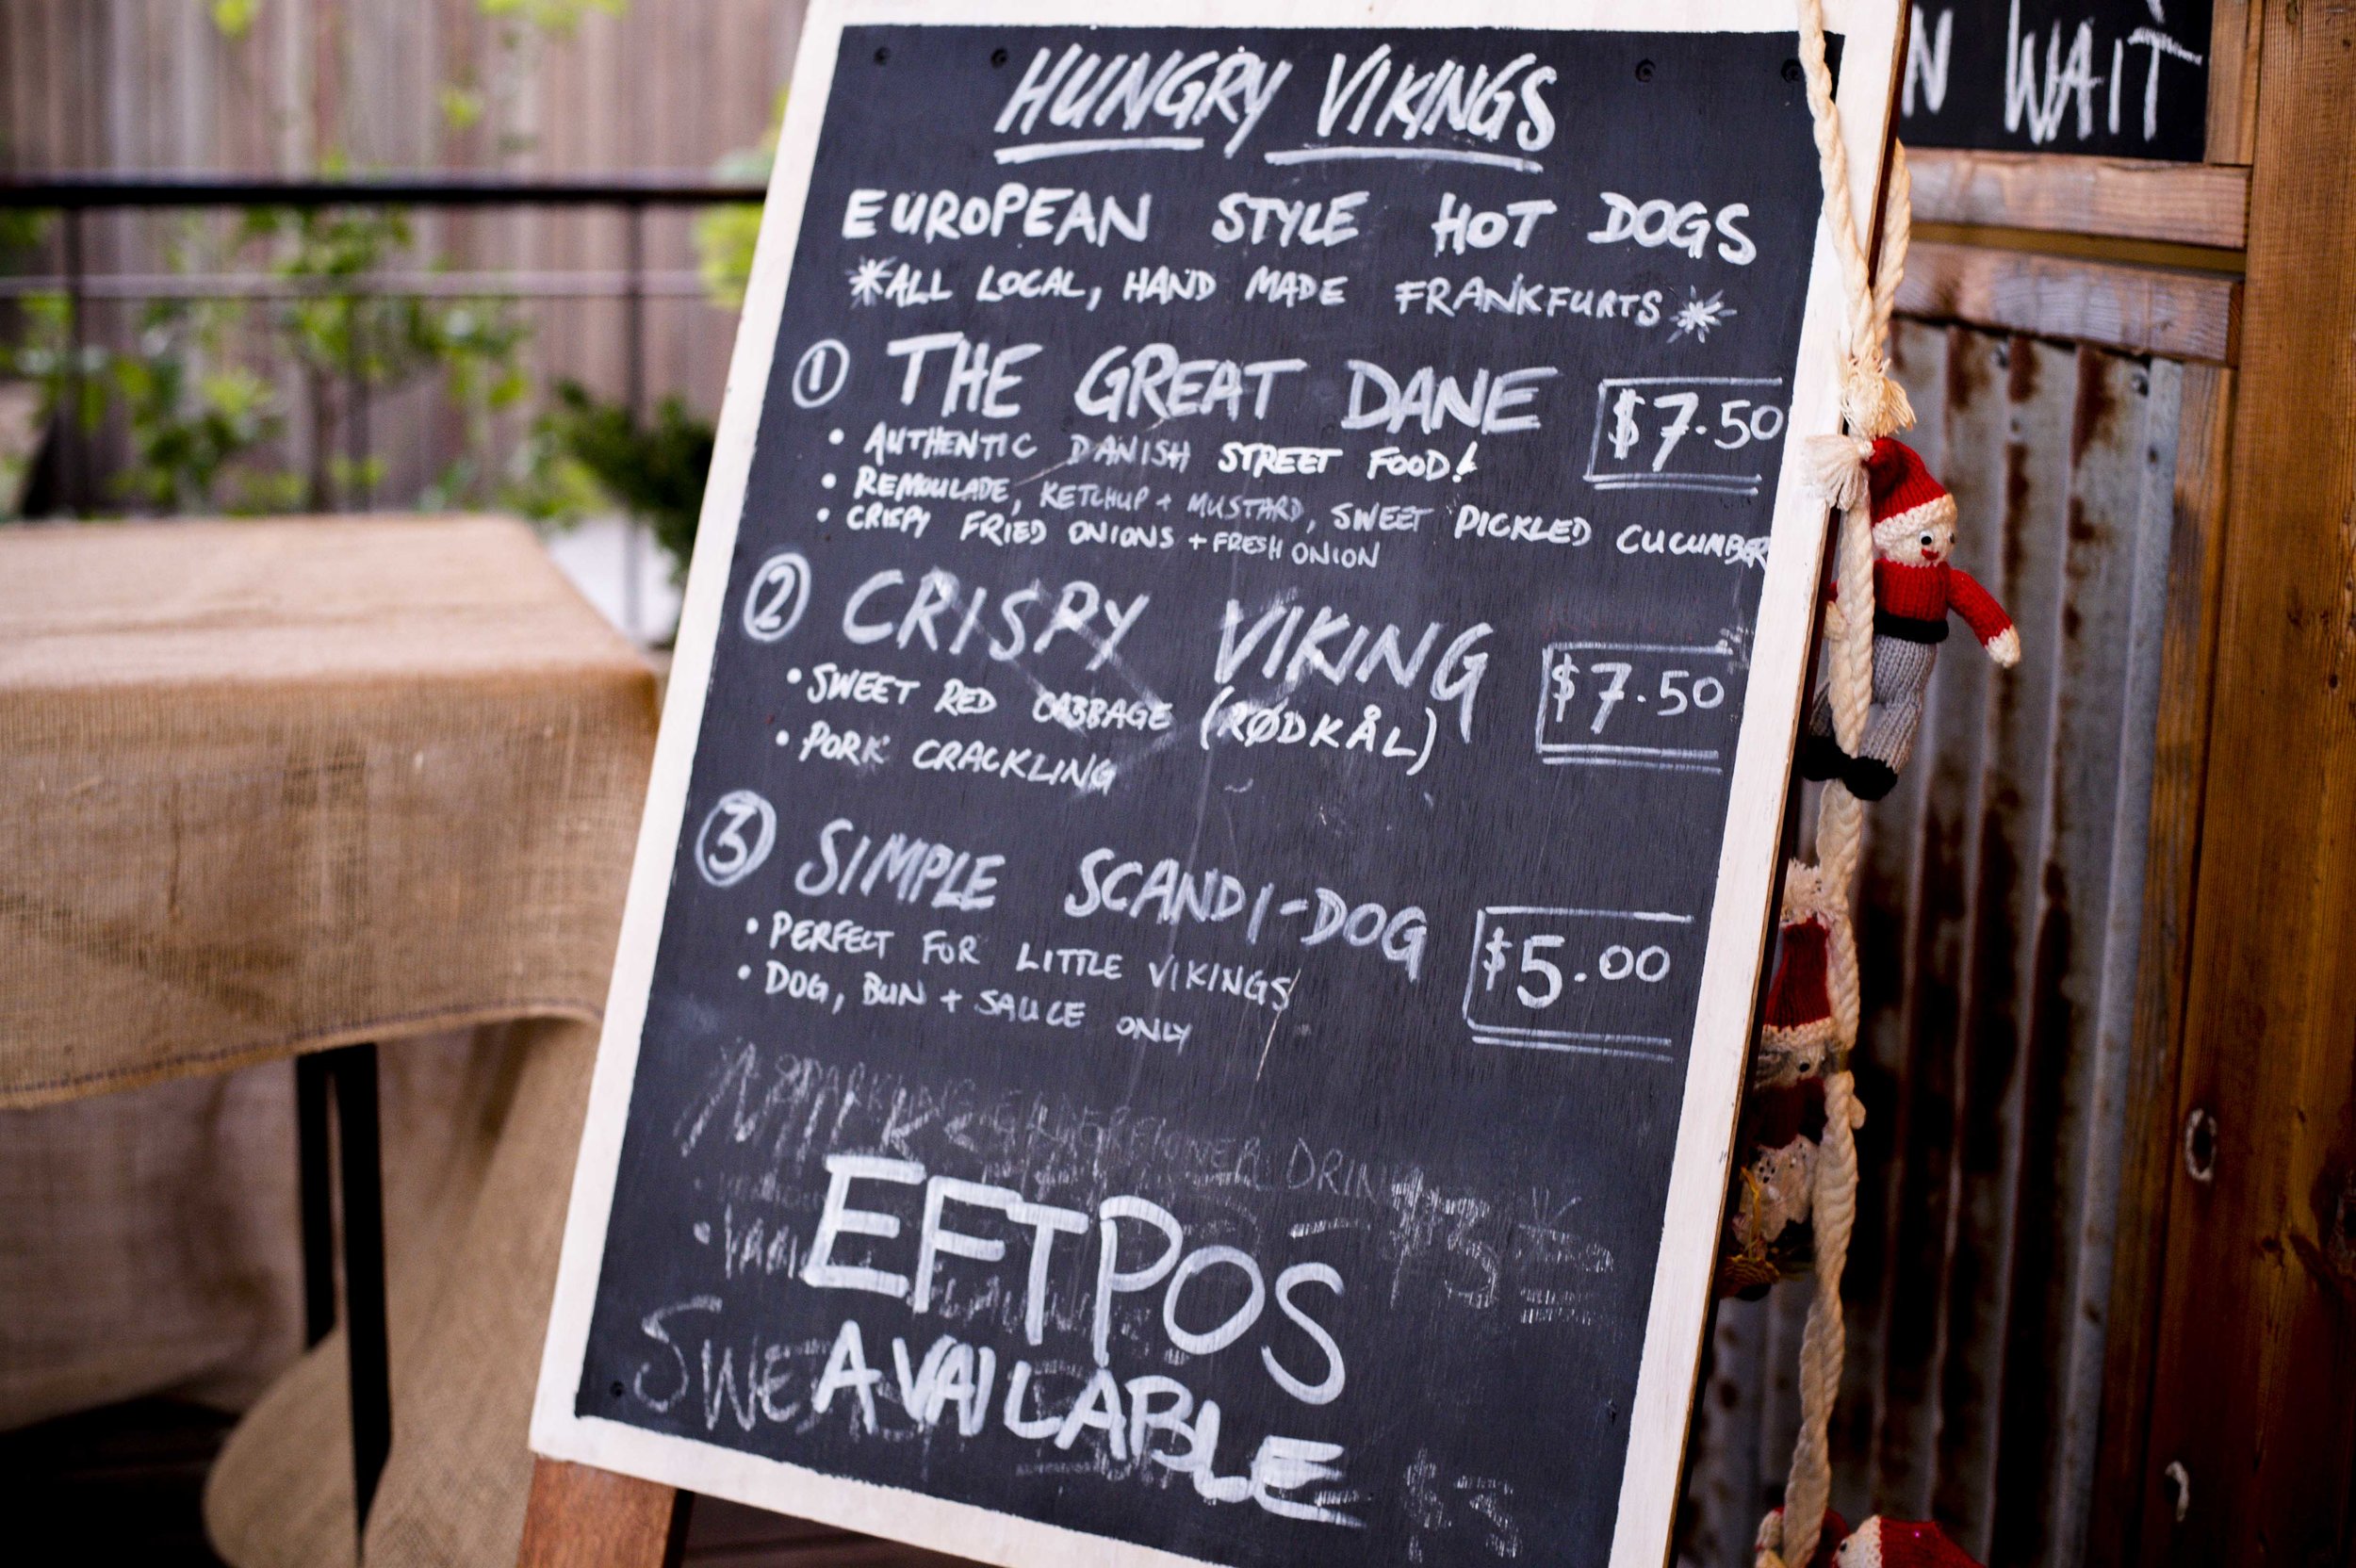 HUNGRY VIKINGS
EUROPEAN STYLE HOT DOGS
*ALL LOCAL, HAND MADE FRANKFURTS*
① THE GREAT DANE $7.50
• AUTHENTIC DANISH STREET FOOD!
• REMOULADE, KETCHUP + MUSTARD, SWEET PICKLED CUCUMBER
• CRISPY FRIED ONIONS + FRESH ONION
② CRISPY VIKING $7.50
• SWEET RED CABBAGE (RØDKÅL)
• PORK CRACKLING
③ SIMPLE SCANDI-DOG $5.00
• PERFECT FOR LITTLE VIKINGS
• DOG, BUN + SAUCE ONLY
DRINK
$3
EFTPOS
AVAILABLE
$3
N WAIT